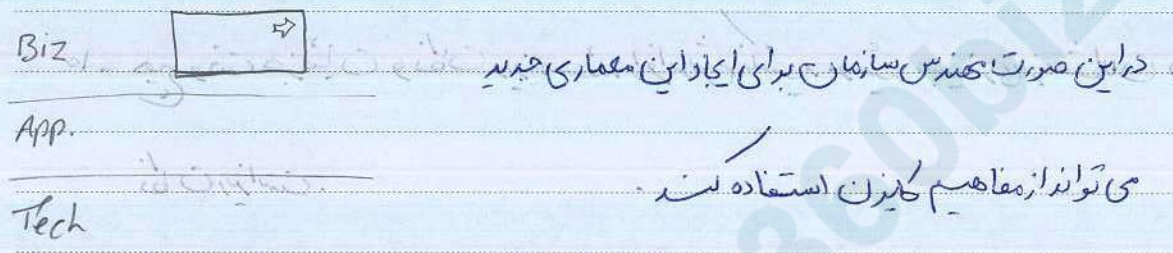 Biz
در این صورت مهندس سازمان برای ایجاد این معماری جدید
App.
می تواند از مفاهیم کایزن استفاده کند.
Tech
360